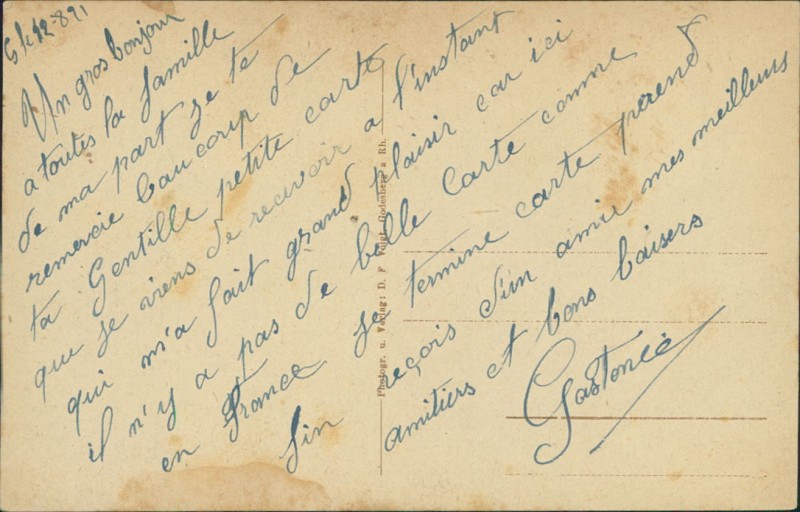 Gk 42-891
Un gros bonjour
a toutes la famille
de ma part je te
remercie beaucoup de
ta Gentille petite carte
que je viens de recevoir a l'instant
qui m'a fait grand plaisir car ici
il n'y a pas de belle Carte comme
en France je termine carte perend
fin reçois d'un amie mes meilleurs
amitiers et bons baisers
Gastonée
Photogr. u. Verlag: D. F. Voigt, Godesberg a Rh.